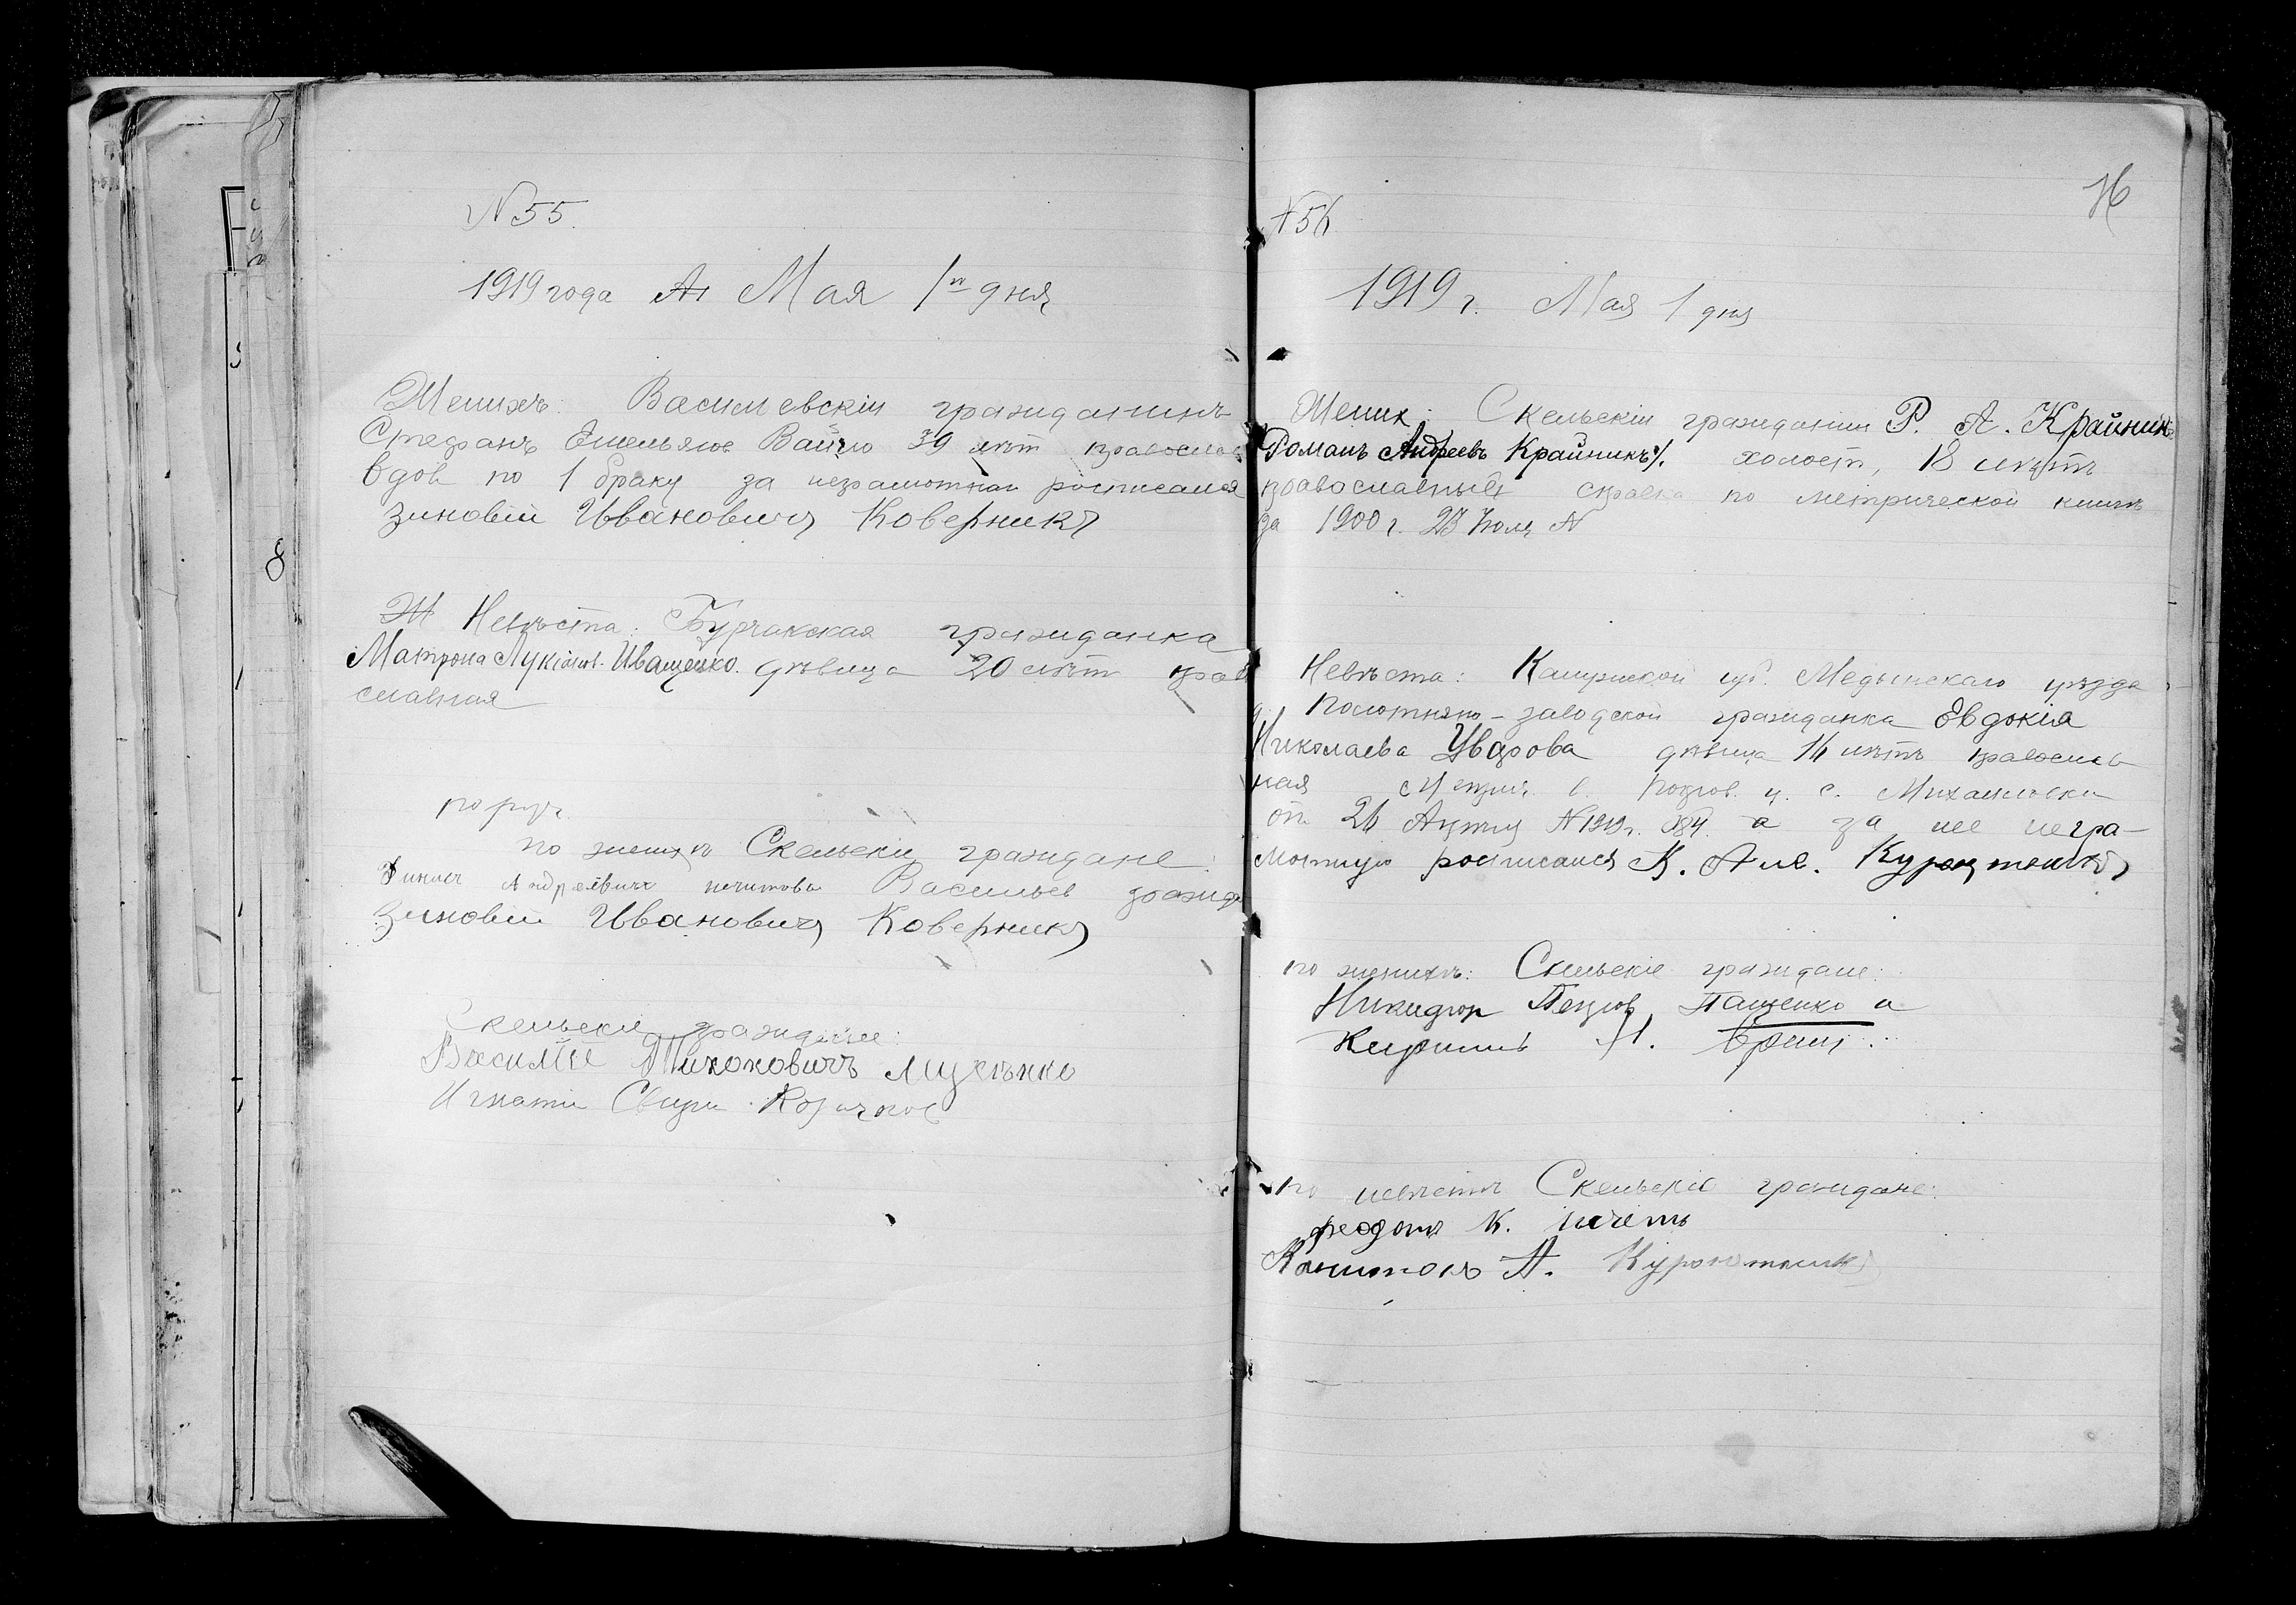 № 55.
1919 года Ап Мая 1го дня
Женихъ: Василевскiи гражданинъ
Стефанъ Емельянов Вайло 39 лѣт православ
вдов по 1 браку за неграмотнаи росписался
Зиновiй Ивановичъ Коверникъ
Ж Невѣста: Бурчакская гражданка
Матрона Лукiанов. Иващенко. дѣвица 20 лѣт прав
славная
поруч
по жених ѣ Скельски граждане:
Андреевичъ Васильев гражда
Зиновiй Ивановичъ Коверникъ
Скельскiе граждане:
Василiе Тихоновичъ Луценко
Игнатiи Свири.
76
№ 56
1919 г. Мая 1 дня
Жених: Скельскiи гражданин Р. А. Крайник
Романъ Андреевъ Крайникъ холост, 18 лѣтъ
православный справка по метрической книгѣ
за 1900 г. 23 Iюля №
Невѣста: Калужской губ. Медынскаго уѣзда
Полотняно-заводской гражданка Евдокiя
Николаева Уварова дѣвица 16 лѣтъ православ
ная Метрич. в. Покров. ц. с. Михайловки
от 26 Апрѣля № 1919 г. 384. а за нее негра-
мотную росписался К. Але.
по женихѣ: Скельскiе граждане:
Никифор Петров Пащенко и
Кирилъ Л.
по невѣстѣ Скельскiе граждане:
Феодот К.
А.